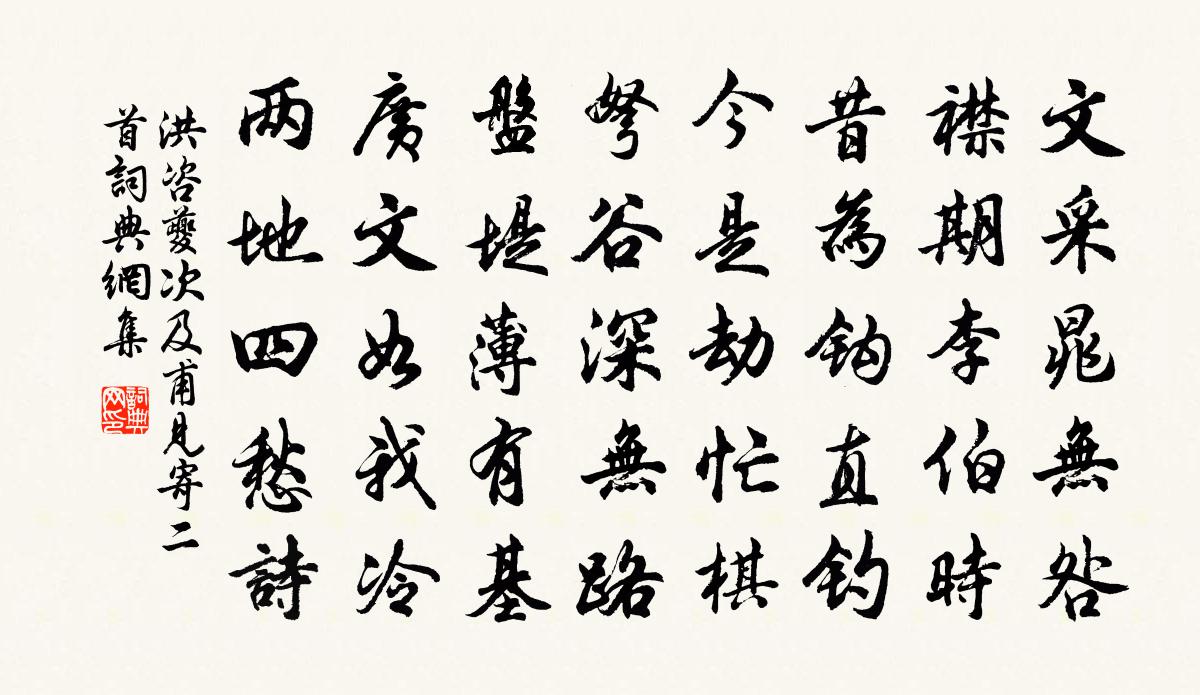 文采晁無咎
襟期李伯時
昔為鈎直釣
今是劫忙棋
弩谷深無路
盤堤薄有基
廣文如我冷
两地四愁詩
洪咨夔次及甫見寄二
首詞典網集
詞典
网印